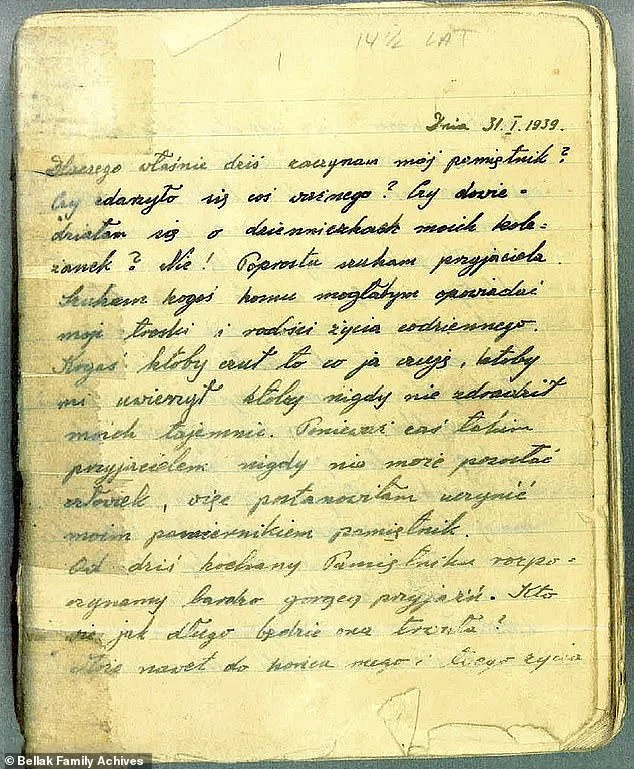 14½ LAT
Dnia 31.I.1939.
Dlaczego właśnie dziś zaczynam mój pamiętnik?
Czy zdarzyło się coś ważnego? Czy dowie-
działam się o dzienniczkach moich kole-
żanek? Nie! Poprostu szukam przyjaciela.
Szukam kogoś komu mogłabym opowiadać
moje troski i radości życia codziennego.
Kogoś któby czuł to co ja czuję, któby
mi uwierzył któby nigdy nie zdradził
moich tajemnic. Ponieważ zaś takim
przyjacielem nigdy nie może pozostać
człowiek, więc postanowiłam uczynić
moim powiernikiem pamiętnik.
Od dziś kochany Pamiętniku rozpo-
czynamy bardzo gorącą przyjaźń. Kto
wie jak długo będzie ona trwała?
może nawet do końca mego i twego życia
© Bellak Family Achives